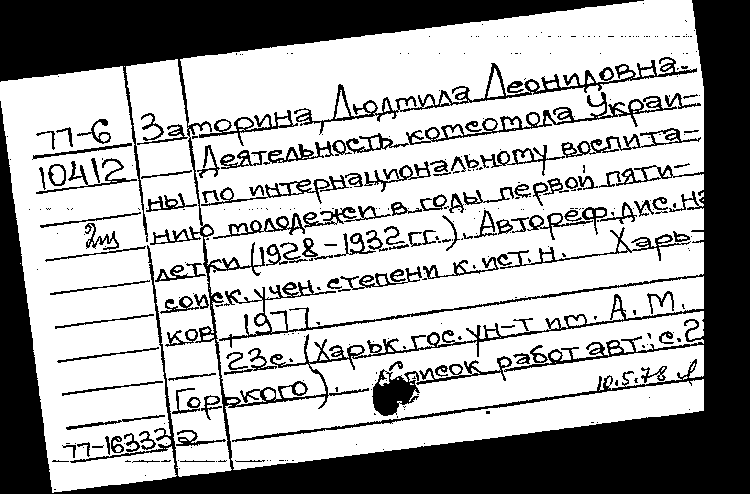 77-6
10412
2 т
Заторина, Людмила Леонидовна.
Деятельность комсомола Украи-
ны по интернациональному воспита-
нию молодежи в годы первой пяти-
летки (1928-1932 гг.). Автореф. дис. на
соиск. учен. степени к.ист.н. Харь-
ков, 1977.
23с. (Харьк. гос. ун-т им. А. М.
Горького). Список работ авт.: с.2
10.5.78
77-16333